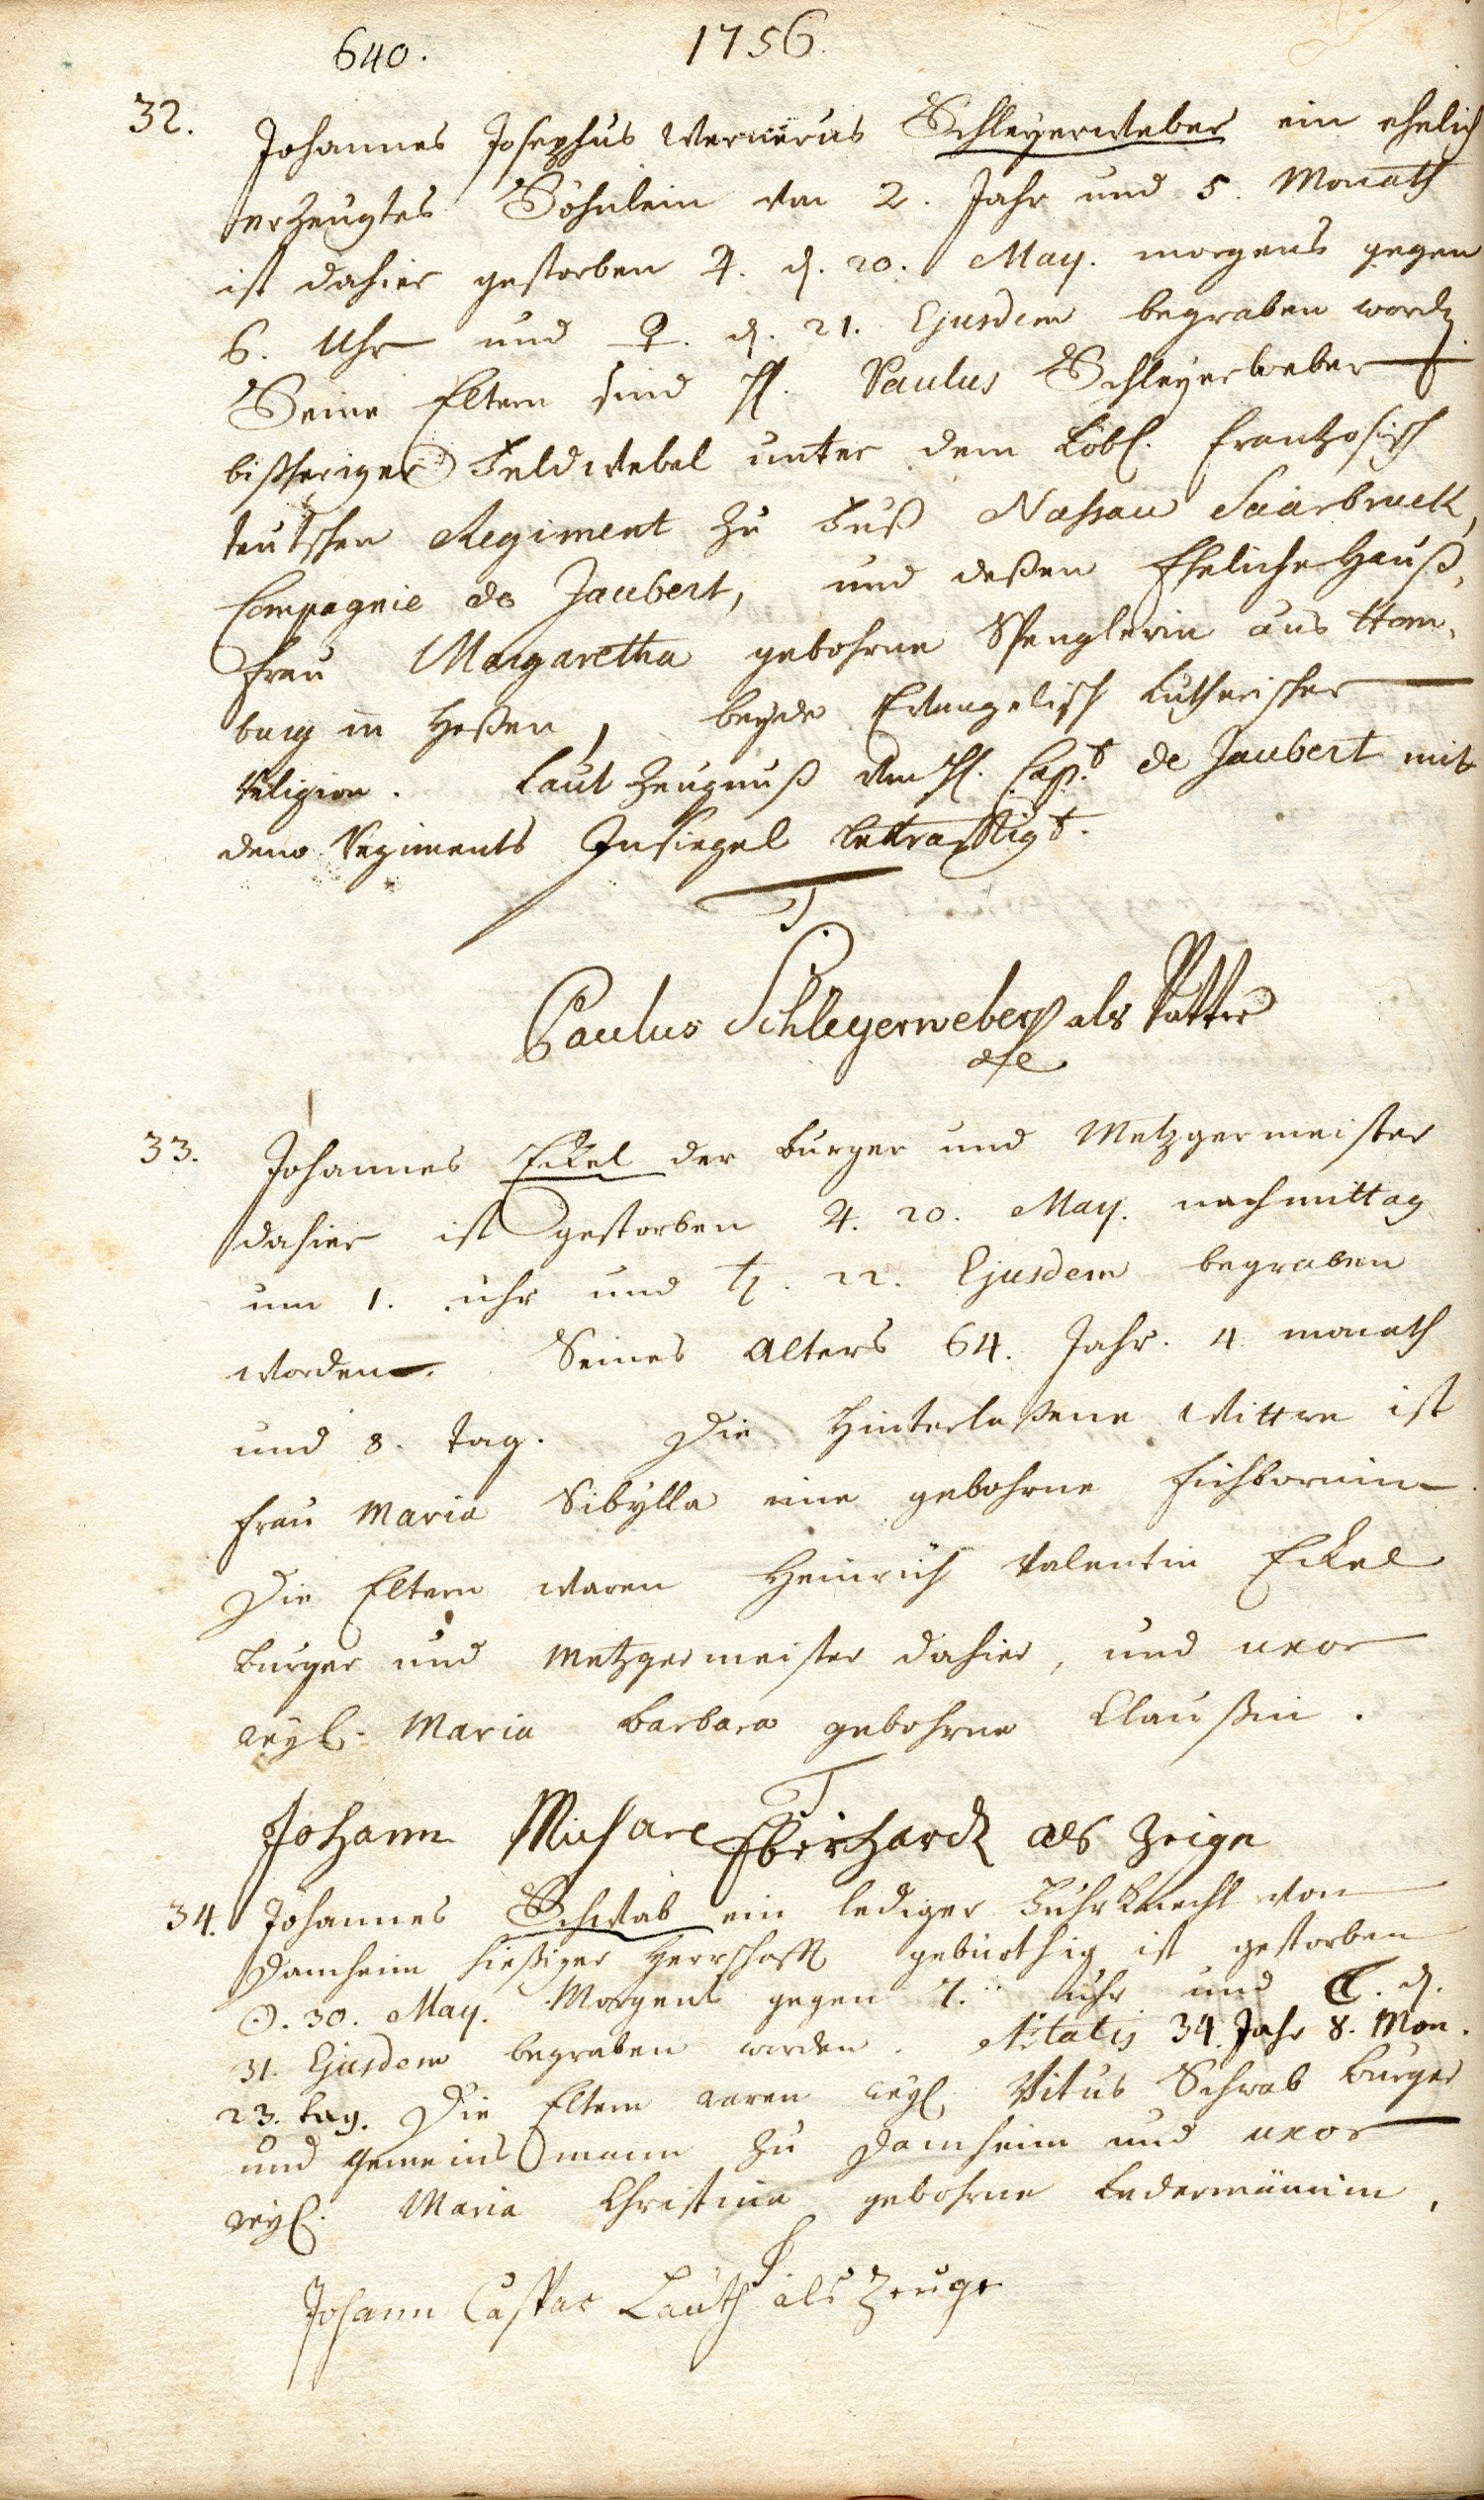 640. 1756.
32. Johannes Josephus Wernerus Schleyerweber ein ehelich
erzeugtes Söhnlein von 2. Jahr und 5. Monath
ist dahier gestorben ♃. d. 20. May. morgens gegen
6. Uhr und ♀. d. 21. Ejusdem begraben word.
Seine Eltern sind H. Paulus Schleyerweber
bißheriger Feldwebel unter dem Löbl. Frantzosisch
teutschen Regiment zu Fuß Nassau Saarbruck,
Compagnie de Jaubert, und deßen Eheliche Hauß,
frau Margaretha gebohrne Spenglerin aus Hom,
burg in Heßen, beyde Evangelisch Lutherischer
Religion. Laut Zeugnuß von H. Capt de Jaubert mit
dero Regiments Insiegel bekrafftigt.
Paulus Schleyerweber als Vatter
33. Johannes Eckel der burger und Metzgermeister
dahier ist gestorben ♃. 20. May. nachmittag
um 1. uhr und ♄. 22. Ejusdem begraben
worden. Seines Alters 64. Jahr. 4 monath
und 8. tag. Die Hinterlaßene Wittwe ist
frau Maria Sibylla eine gebohrne Eichbornin
Die Eltern waren Heinrich Valentin Eckel
burger und Metzgermeister dahier, und uxor
weyl. Maria barbara gebohrne Claußin.
Johann Michael Eberhardt als Zeige
34. Johannes Schwab ein lediger Fuhrknecht von
Damheim hießiger Herrschafft gebürthig ist gestorben
☉. 30. May. Morgens gegen 7. uhr und ☾. d.
31. Ejusdem begraben worden. Ætatis 34. Jahr 8. Mon.
23. tag. Die Eltern waren weyl. Vitus Schwab burger
und gemeinsmann zu Damheim und uxor
weyl. Maria Christina gebohrne Ledermännin,
Johann Caspar Lauth als Zeuge